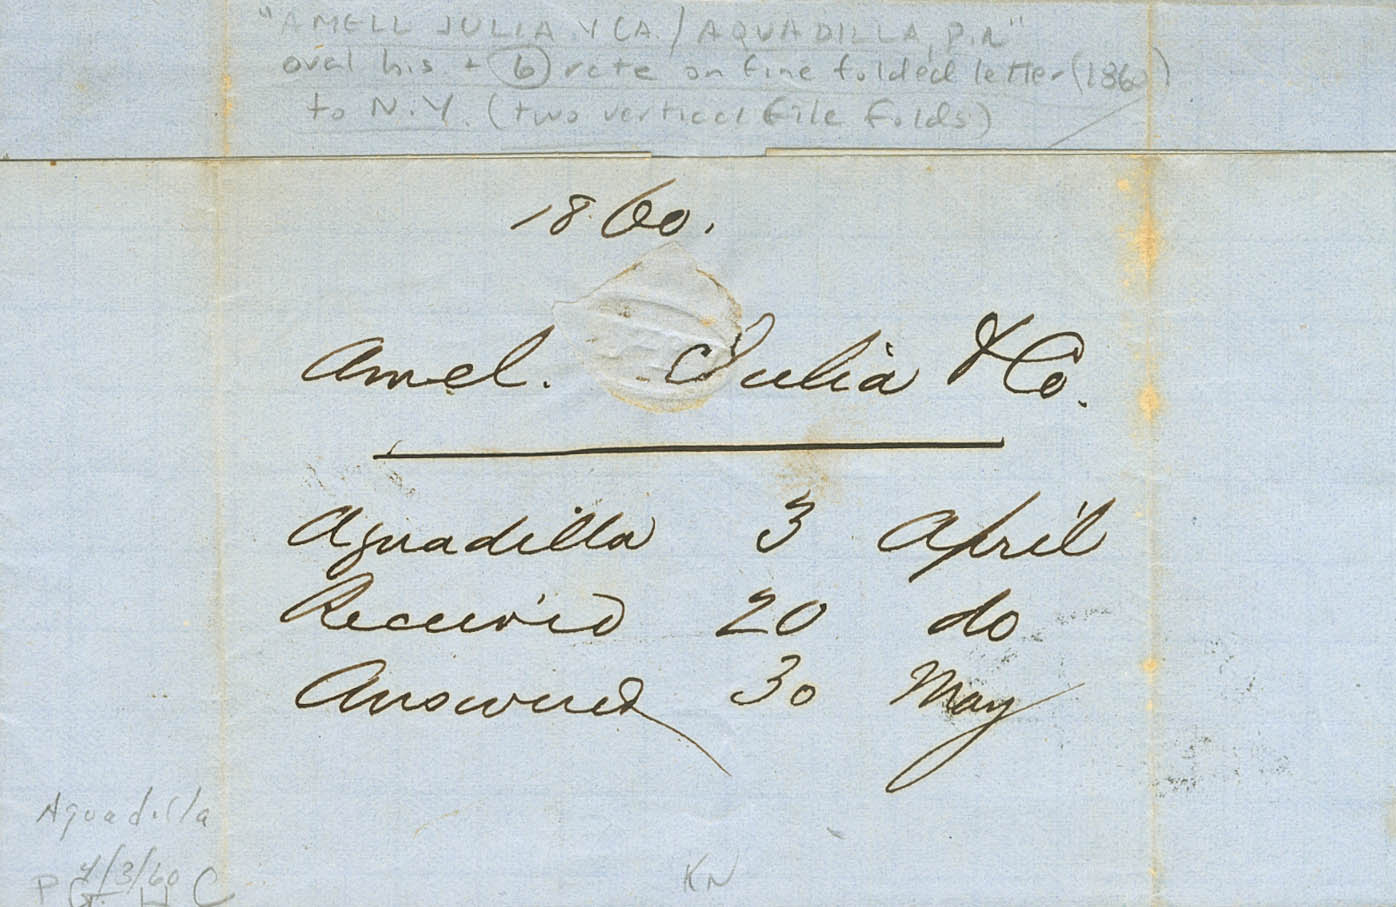 "AMELL JULIA Y CA./AQUADILLA, P.R"
oval h.s. + (6) rate on fine folded letter (1860)
to N.Y. (two vertical file folds)
1860.
Amel. Julia & Co.
Aguadilla 3 April
Received 20 do
Answered 30 May
Aguadilla
4/3/60
KN